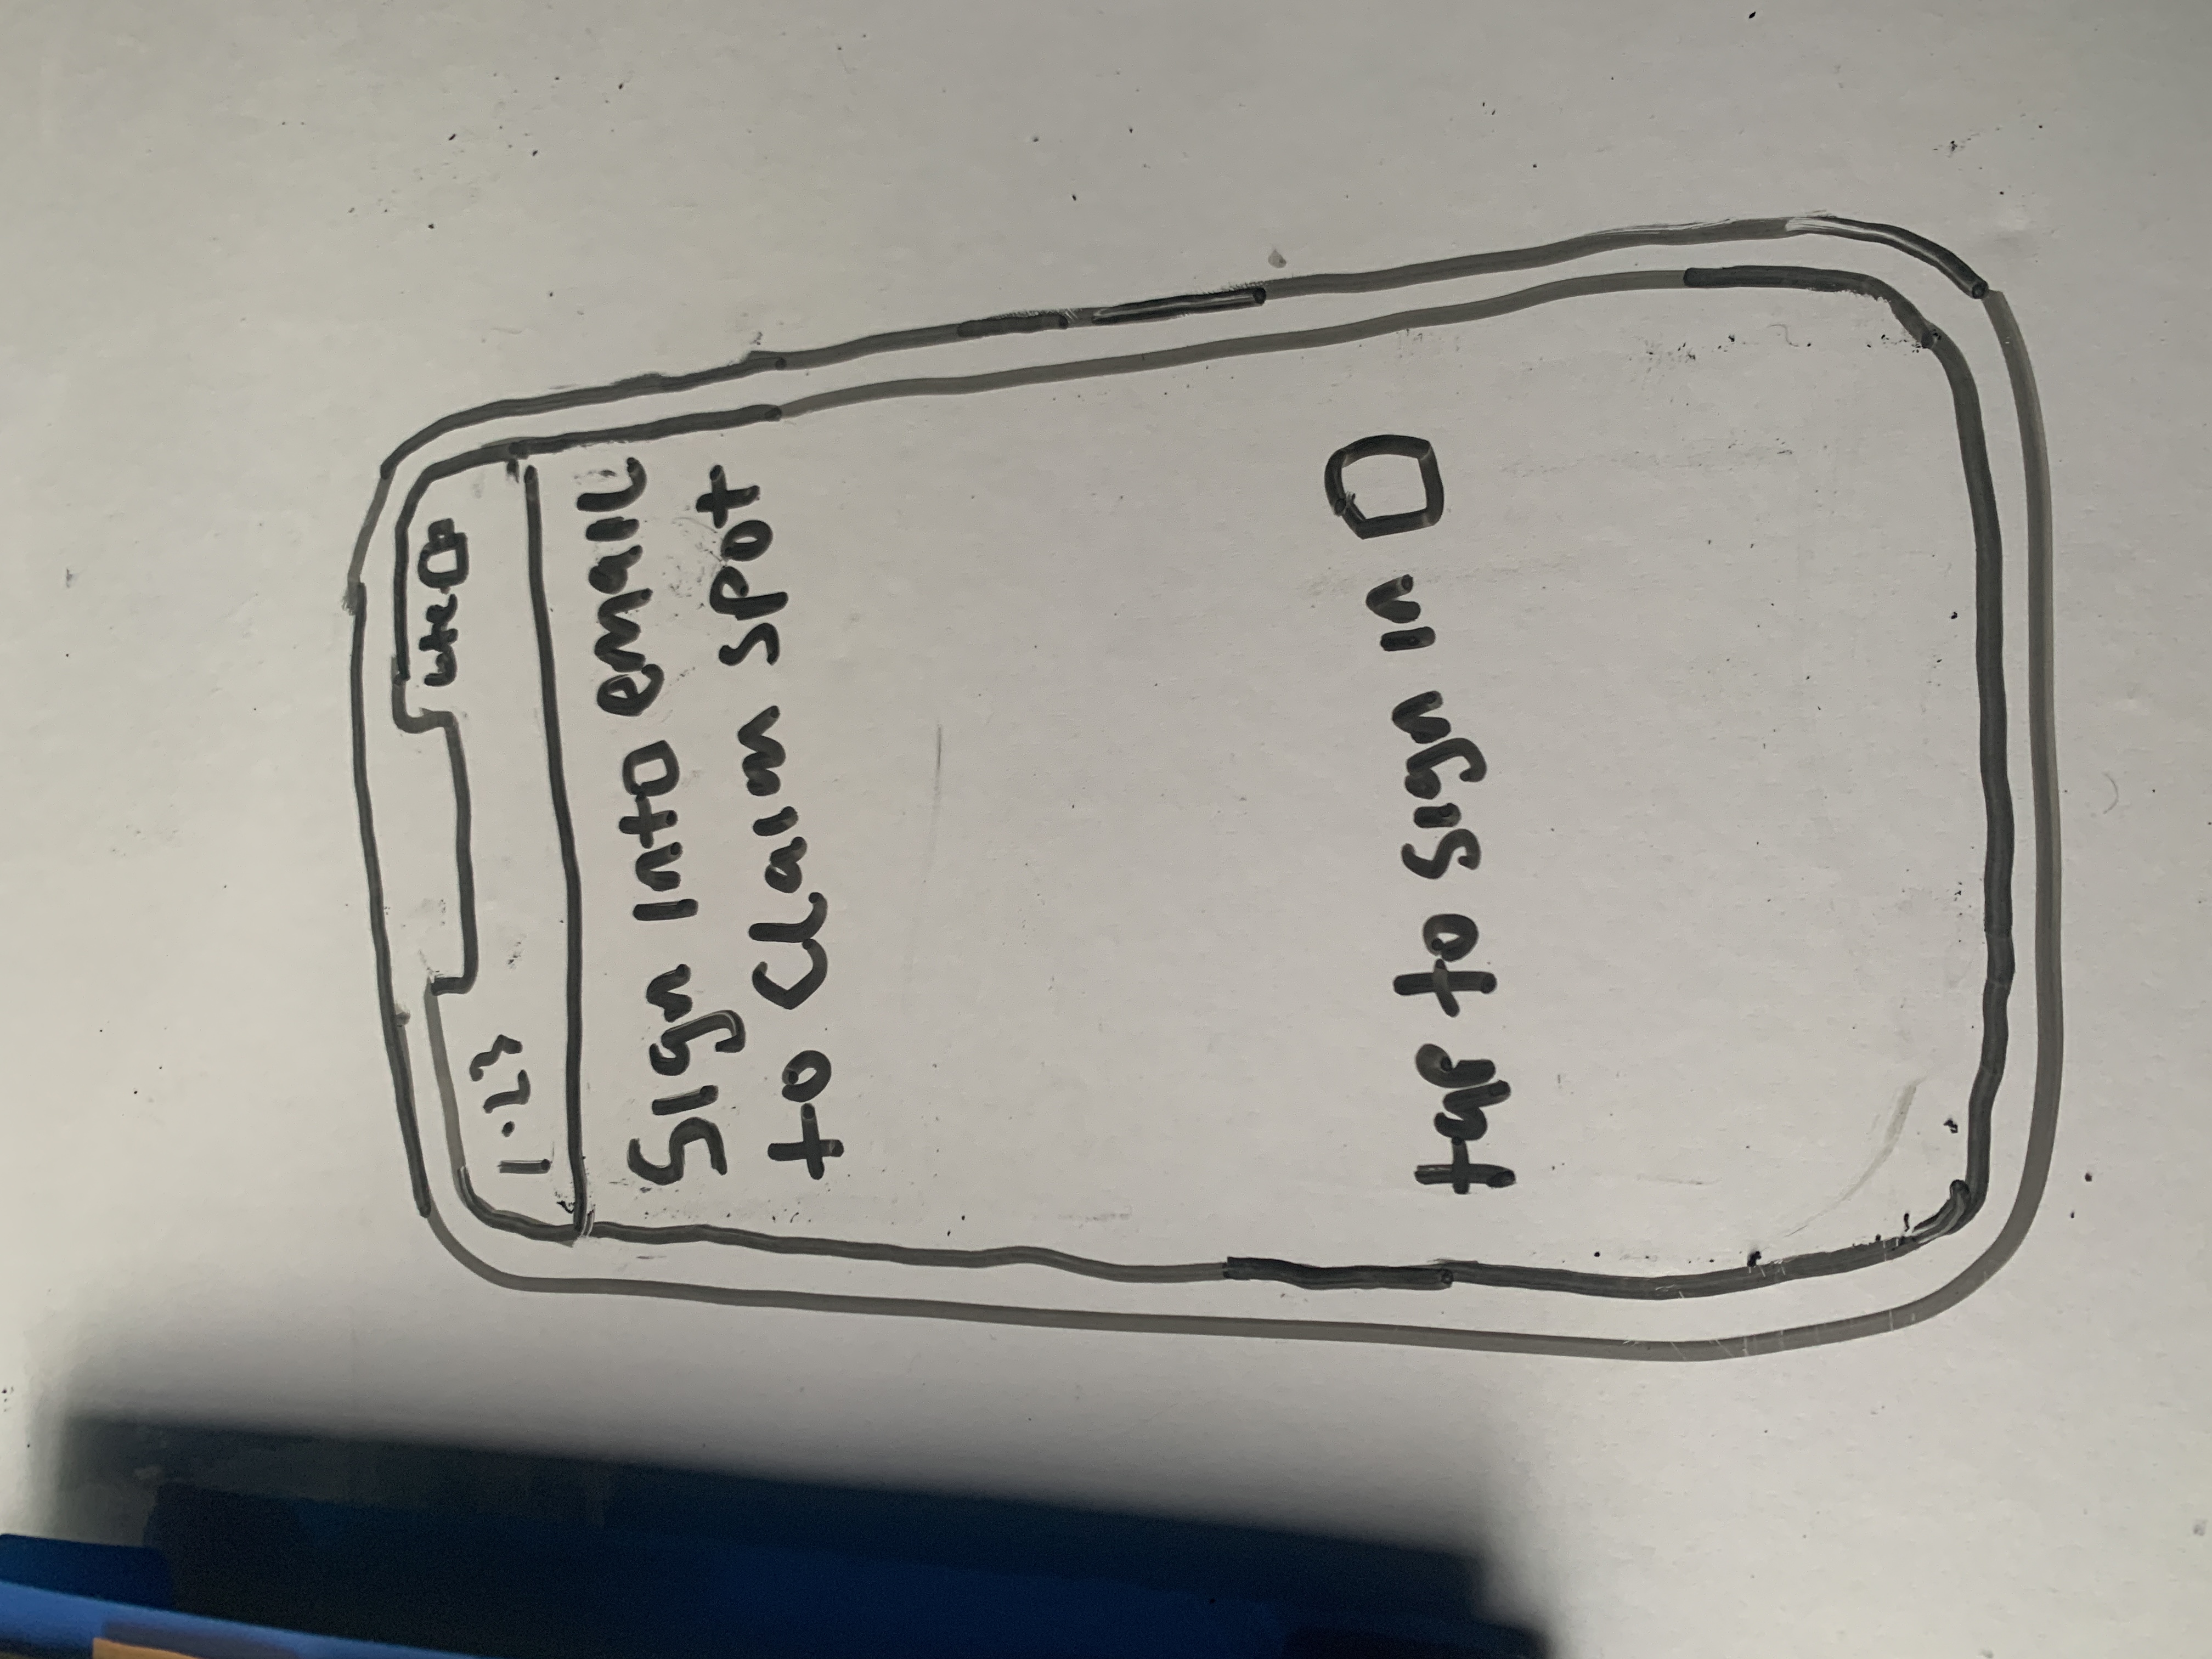 1:23
Lte
Sign into email
to Claim spot
tap to sign in